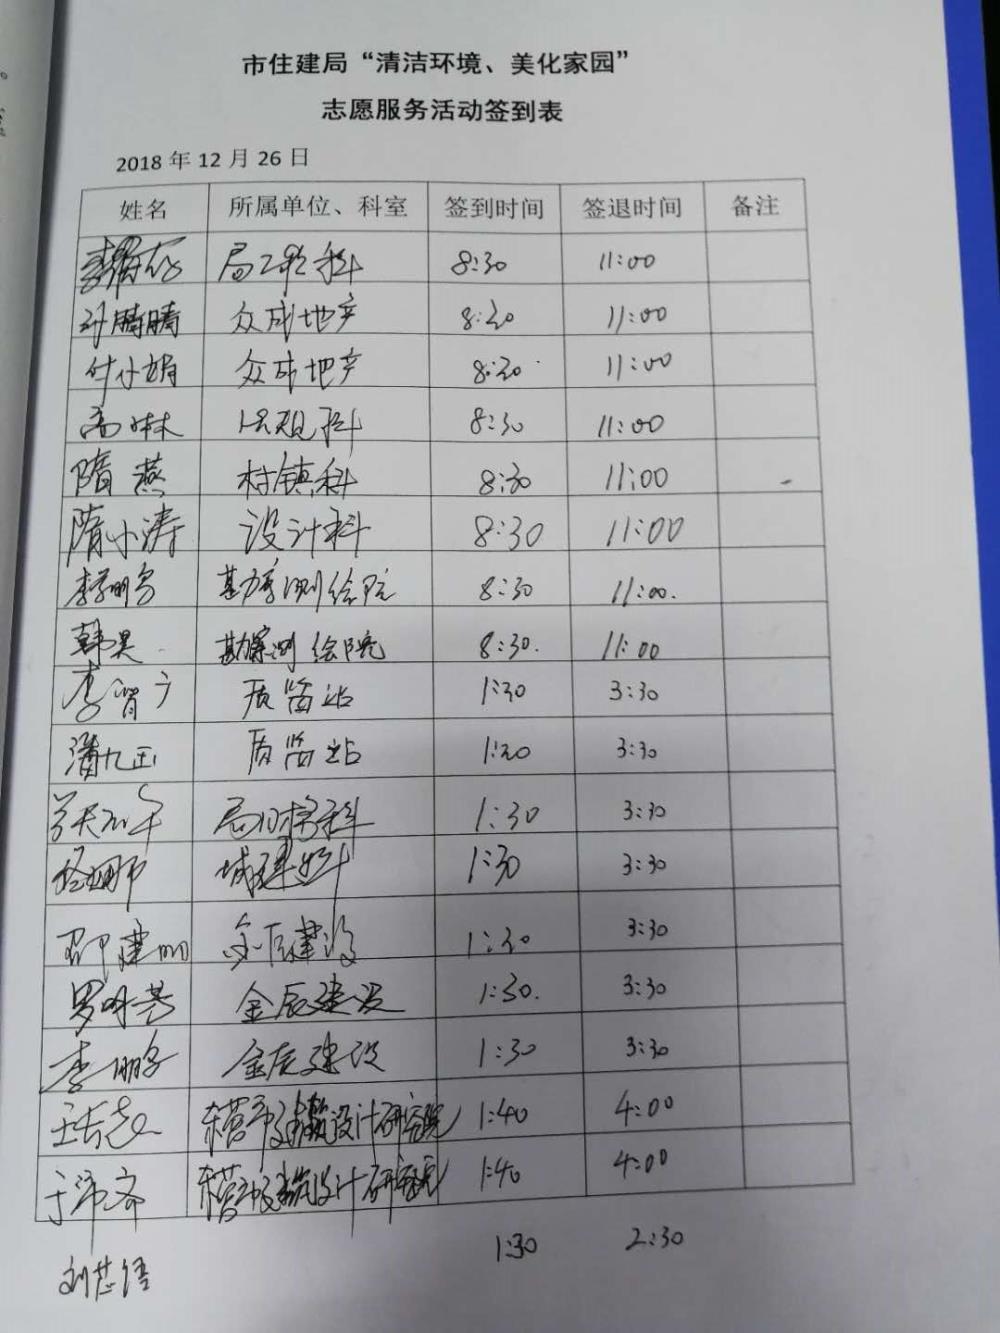 市住建局“清洁环境、美化家园”
志愿服务活动签到表
2018年12月26日
姓名 所属单位、科室 签到时间 签退时间 备注
局工程科 8:30 11:00
孙腾腾 众成地产 8:30 11:00
付小娟 众成地产 8:30 11:00
高琳 法规科 8:30 11:00
隋燕 村镇科 8:30 11:00
隋小涛 设计科 8:30 11:00
李明 勘察测绘院 8:30 11:00.
韩昊 勘察测绘院 8:30. 11:00
李智广 质监站 1:30 3:30
潘九玉 质监站 1:30 3:30
局科 1:30 3:30
城建科 1:30 3:30
建明 金辰建设 1:30 3:30
罗明芳 金辰建设 1:30. 3:30
李鹏 金辰建设 1:30 3:30
王志 东营市建筑设计研究院 1:40 4:00
于沛齐 东营市建筑设计研究院 1:40 4:00
刘芯语 1:30 2:30